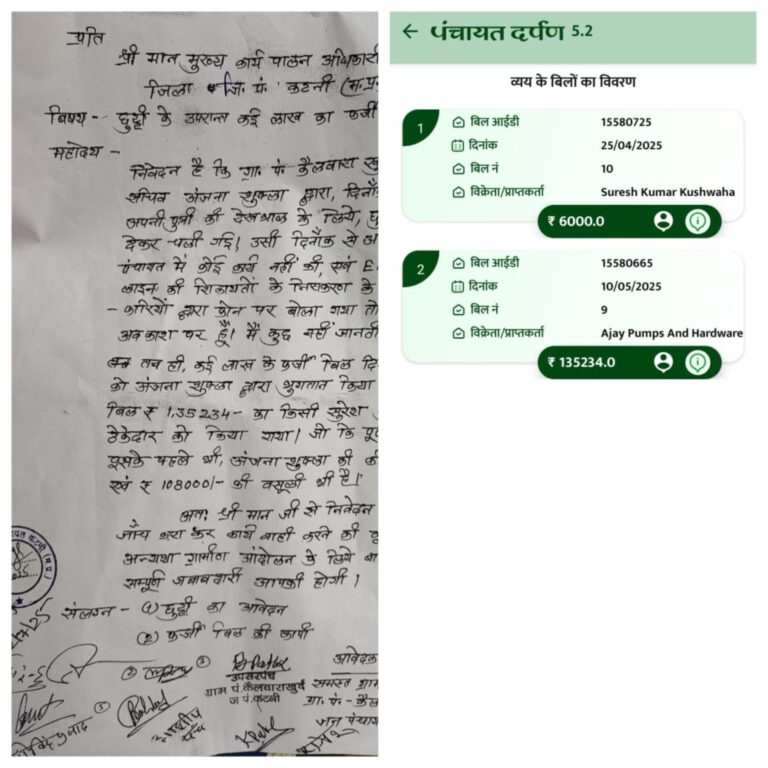 प्रति
श्री मान मुख्य कार्य पालन अधिकारी
जिला जि. पं. कटनी (म.प्र.
विषय - छुट्टी के उपरान्त कई लाख का फर्जी
महोदय -
निवेदन है कि ग्रा. पं. कैलवारा खु
सचिव अंजना शुक्ला द्वारा, दिनाँ
अपनी पुत्री की देखभाल के लिये, छु
देकर चली गई। उसी दिनाँक से अ
पंचायत में कोई कार्य नहीं की, एवं E.
लाइन की शिकायतों के निराकरण के
- कारियों द्वारा फोन पर बोला गया तो
अवकाश पर हूँ। मैं कुछ नहीं जानती
तब ही, कई लाख के फर्जी बिल दि
को अंजना शुक्ला द्वारा भुगतान किया
बिल ₹ 1,35234- का किसी सुरेश
ठेकेदार को किया गया। जो कि पू
इसके पहले भी, अंजना शुक्ला की क
एवं ₹ 108000/- की वसूली भी है।
अतः श्री मान जी से निवेदन
जाँच करा कर कार्यवाही करने की
अन्यथा ग्रामीण आंदोलन के लिये बा
सम्पूर्ण जवाबदारी आपकी होगी।
संलग्न - (1) छुट्टी का आवेदन
(2) फर्जी बिल की कापी
आवेदक
उपसरपंच
ग्राम पं. कैलवाराखुर्द
ज.पं. कटनी
समस्त ग्राम
ग्रा. पं. - कैल
जन पंचाय
← पंचायत दर्पण 5.2
व्यय के बिलों का विवरण
1
बिल आईडी 15580725
दिनांक 25/04/2025
बिल नं 10
विक्रेता/प्राप्तकर्ता Suresh Kumar Kushwaha
₹ 6000.0
2
बिल आईडी 15580665
दिनांक 10/05/2025
बिल नं 9
विक्रेता/प्राप्तकर्ता Ajay Pumps And Hardware
₹ 135234.0